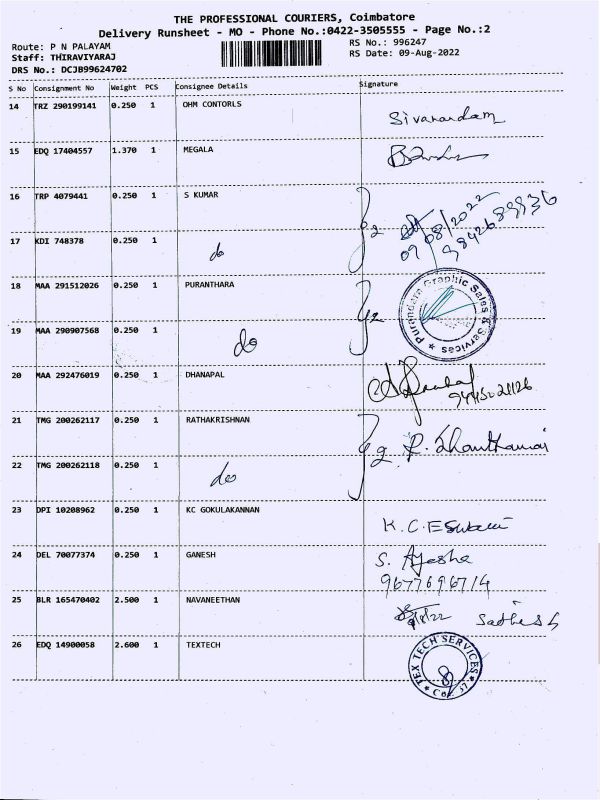 THE PROFESSIONAL COURIERS, Coimbatore
Delivery Runsheet - MO - Phone No.:0422-3505555 - Page No.:2
Route: P N PALAYAM
RS No.: 996247
Staff: THIRAVIYARAJ
RS Date: 09-Aug-2022
DRS No.: DCJB99624702
S No Consignment No Weight PCS Consignee Details Signature
14 TRZ 290199141 0.250 1 OHM CONTORLS
Sivanandam
15 EDQ 17404557 1.370 1 MEGALA
16 TRP 4079441 0.250 1 S KUMAR
2 09/08/2022
9842689936
17 KDI 748378 0.250 1 do
18 MAA 291512026 0.250 1 PURANTHARA
2 Purandara Graphic Sales & Services
19 MAA 290907568 0.250 1 do
20 MAA 292476019 0.250 1 DHANAPAL
21 TMG 200262117 0.250 1 RATHAKRISHNAN
2
22 TMG 200262118 0.250 1 do
23 DPI 10208962 0.250 1 KC GOKULAKANNAN
K.C.Eswari
24 DEL 70077374 0.250 1 GANESH
S. Ayesha
9677696714
25 BLR 165470402 2.500 1 NAVANEETHAN
Sathish
26 EDQ 14900058 2.600 1 TEXTECH
TEX TECH SERVICES